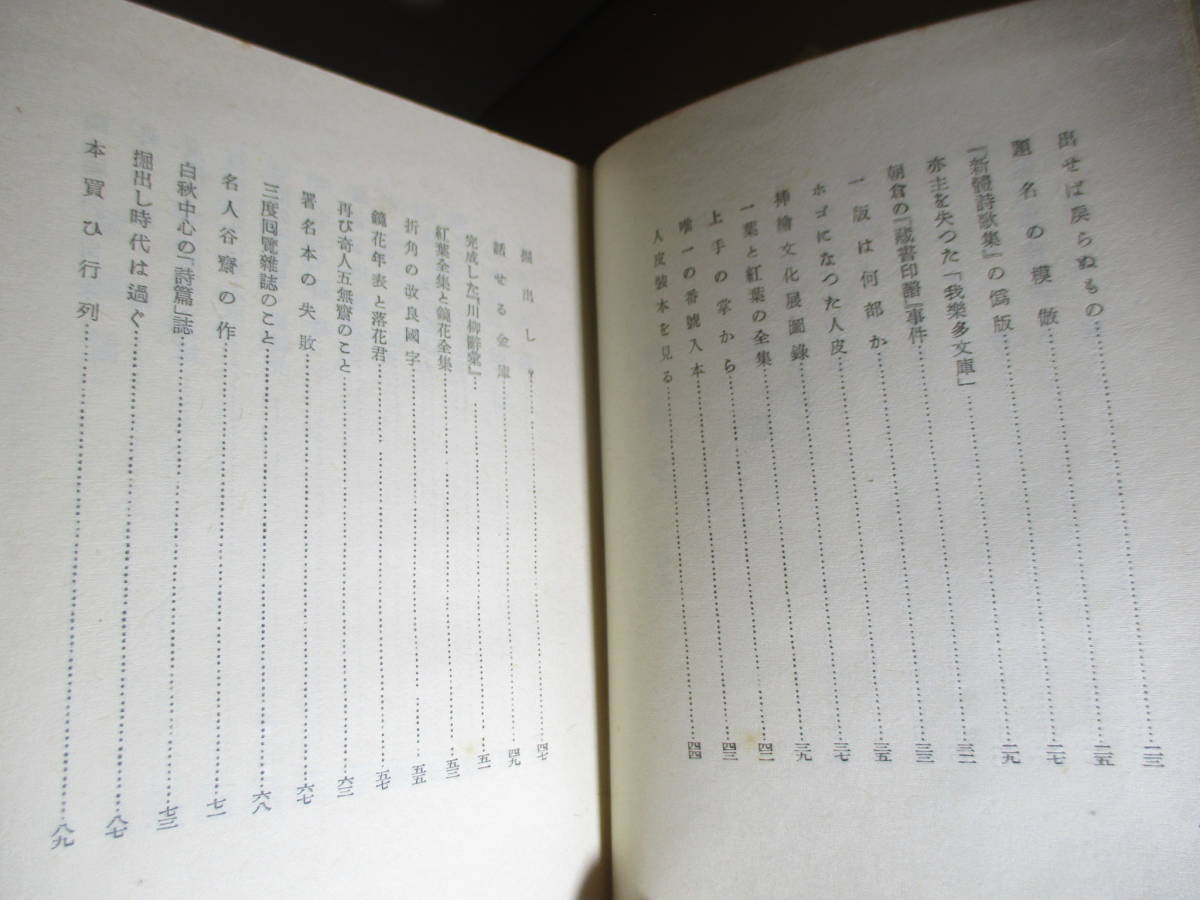 出せば戻らぬもの……二三
題名の模倣……二五
『新體詩歌集』の僞版……二七
亦主を失つた「我樂多文庫」……二九
朝倉の『蔵書印譜』事件……三二
一版は何部か……三三
ホゴになつた人皮……三五
挿繪文化展圖錄……三七
一葉と紅葉の全集……三九
上手の掌から……四二
唯一の番號入本……四三
人皮裝本を見る……四四
掘出し……四七
話せる金庫……四九
完成した『川柳辭彙』……五一
紅葉全集と鏡花全集……五三
折角の改良國字……五五
鏡花年表と落花君……五七
再び奇人五無齋のこと……六三
署名本の失敗……六七
三度回覽雜誌のこと……六八
名人谷齋の作……七一
白秋中心の「詩篇」誌……七三
掘出し時代は過ぐ……八七
本買ひ行列……八九